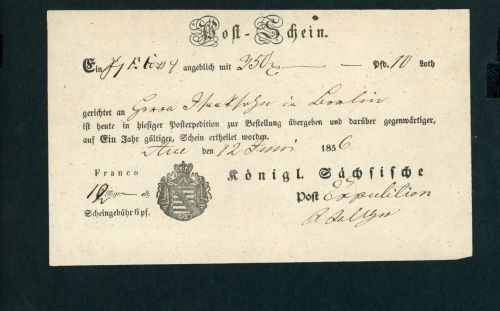 Post-Schein.
Ein angeblich mit 350 — Pfd. 10 Loth
gerichtet an Herrn Isaaksohn in Berlin
ist heute in hiesiger Postexpedition zur Bestellung übergeben und darüber gegenwärtiger,
auf Ein Jahr gültiger, Schein ertheilet worden.
Aue den 12 Juni 1856
Franco
Scheingebühr 6 pf.
Königl. Sächsische
Post Expedition